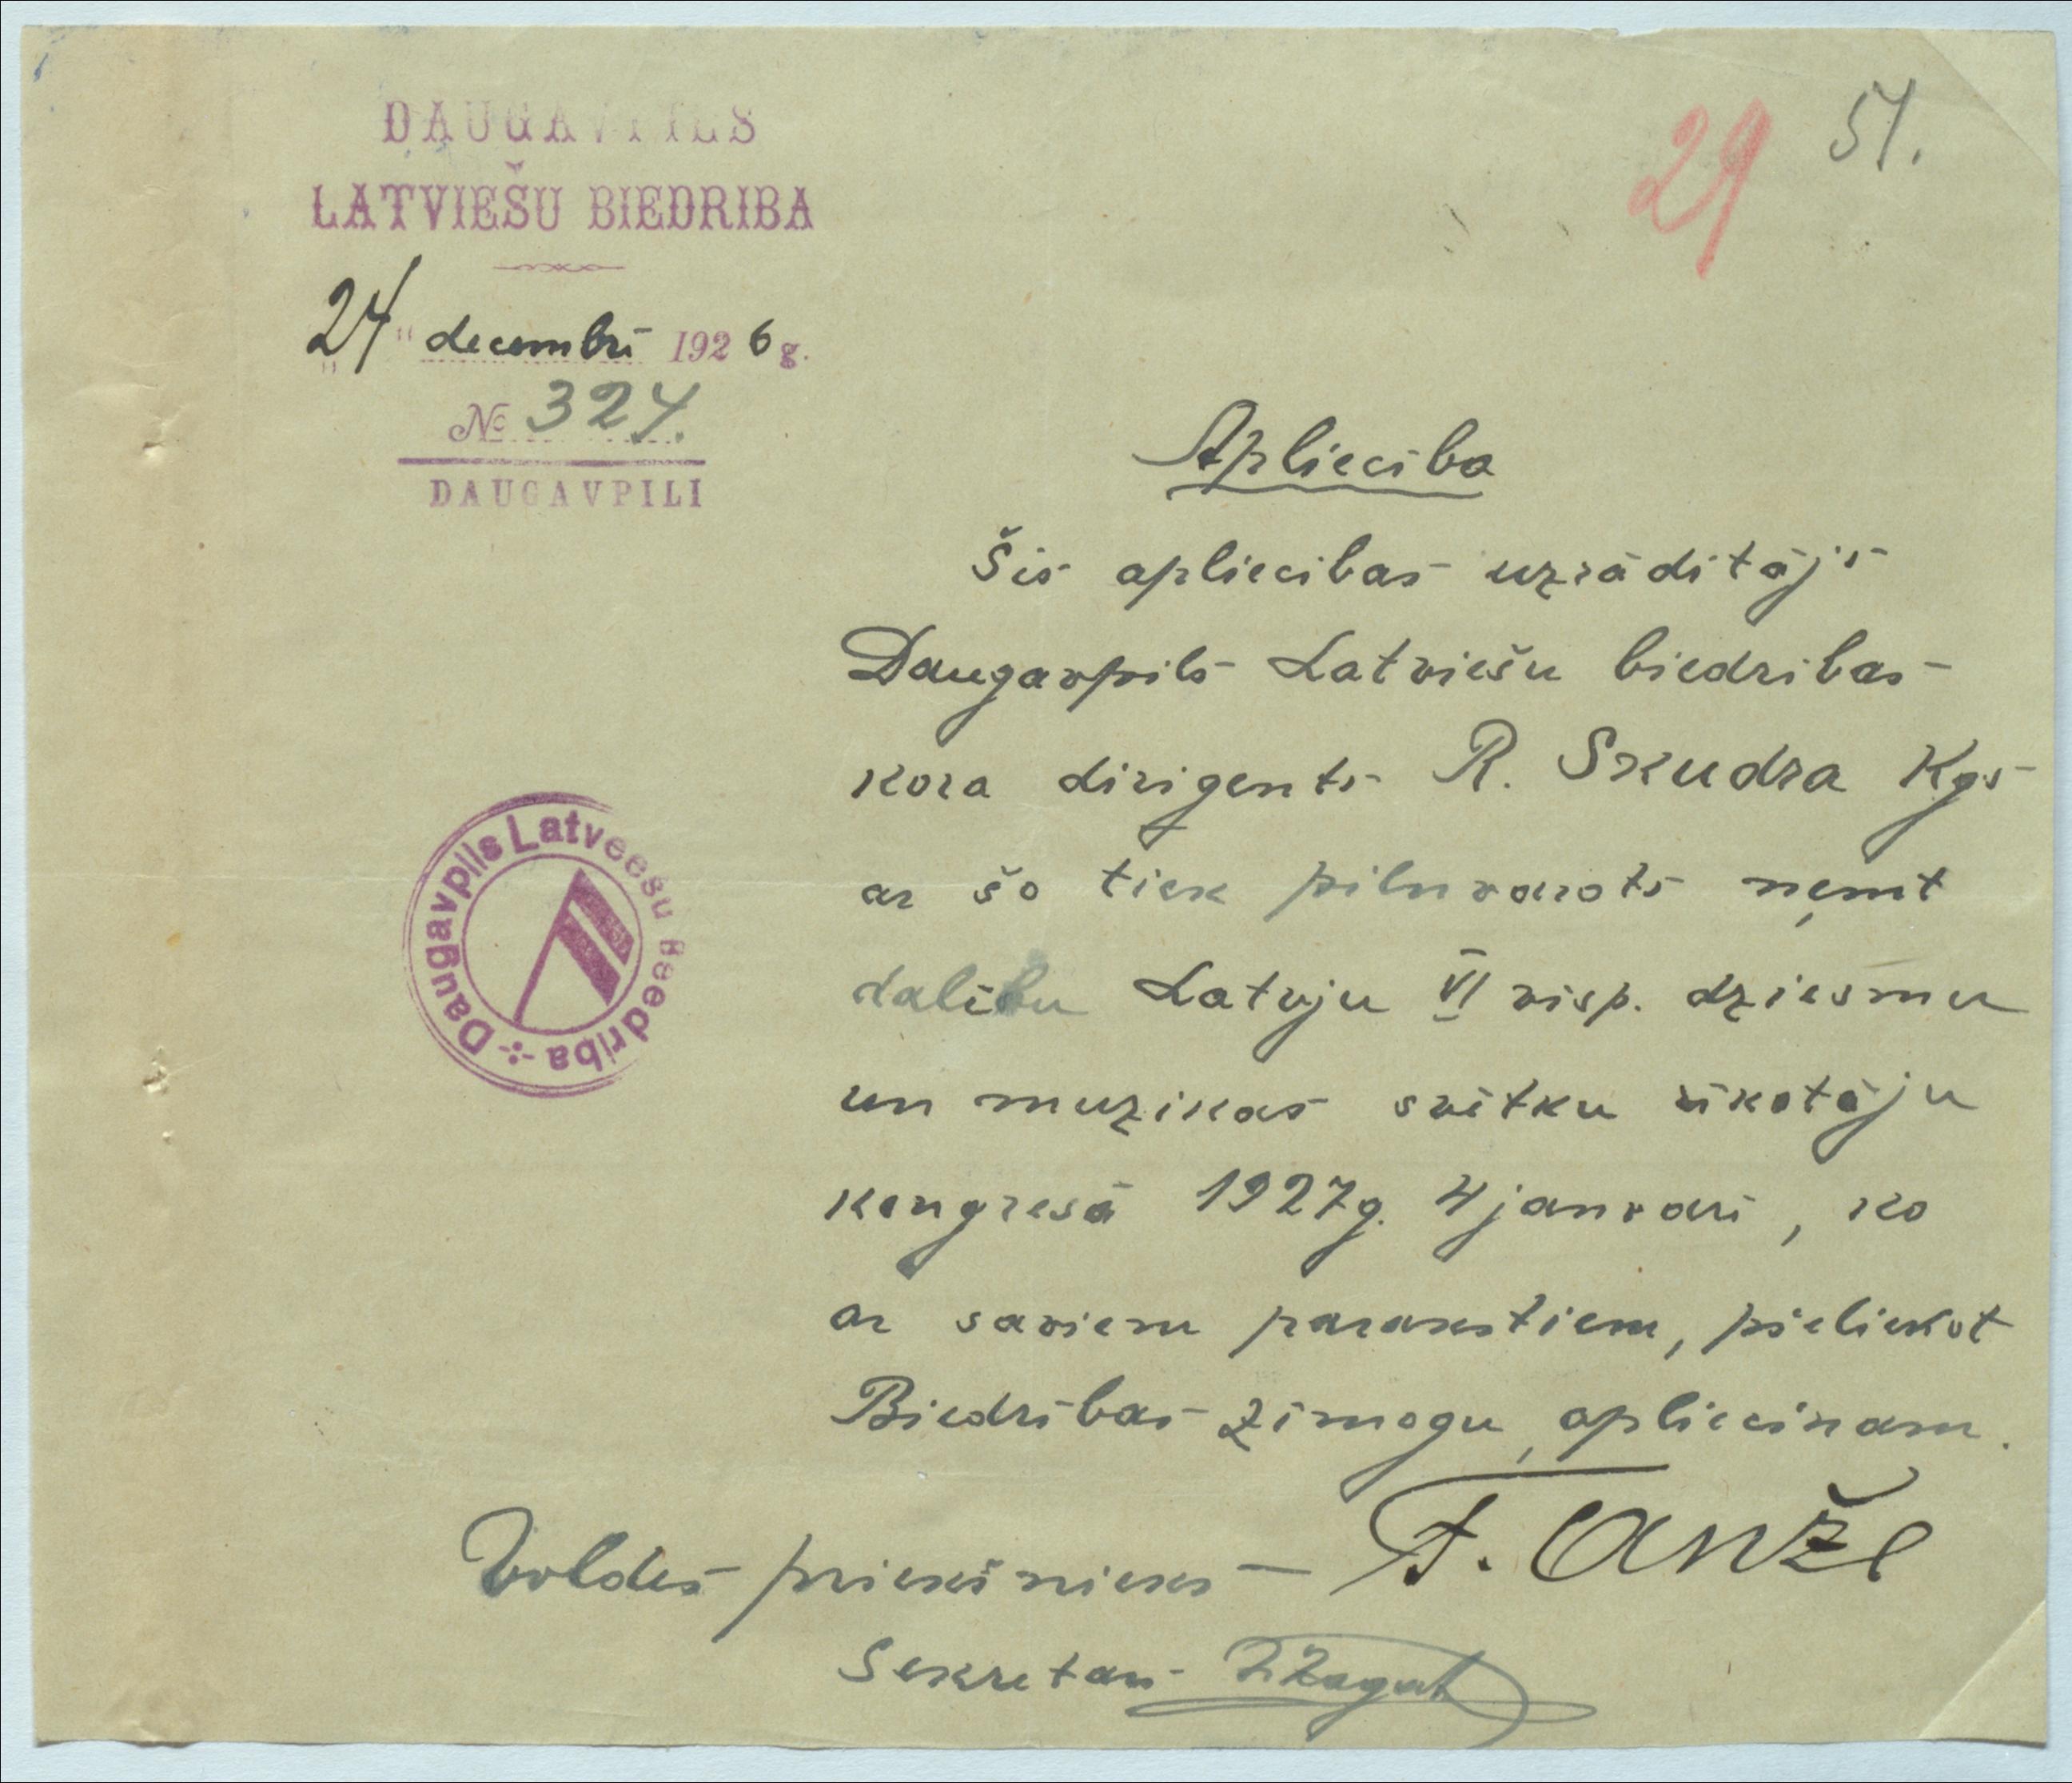 DAUGAVPILS
LATVIEŠU BIEDRIBA
29 51.
"24" decembrī 1926 g.
№ 324.
DAUGAVPILI
Apliecība
Šis apliecibas uzrādītājs
Daugavpils Latviešu biedribas
kora dirigents R. Skudra Kgs
ar šo tiek pilnvarots ņemt
dalību Latvju VI visp. dziesmu
un muzikas svētku rīkotāju
kongresā 1927g. 4 janvarī, ko
ar saviem parakstiem, pieliekot
Biedrības zīmogu, apliecinam.
Daugavpils Latveešu Beedriba
Valdes priekšnieks – F. Anže
Sekretars